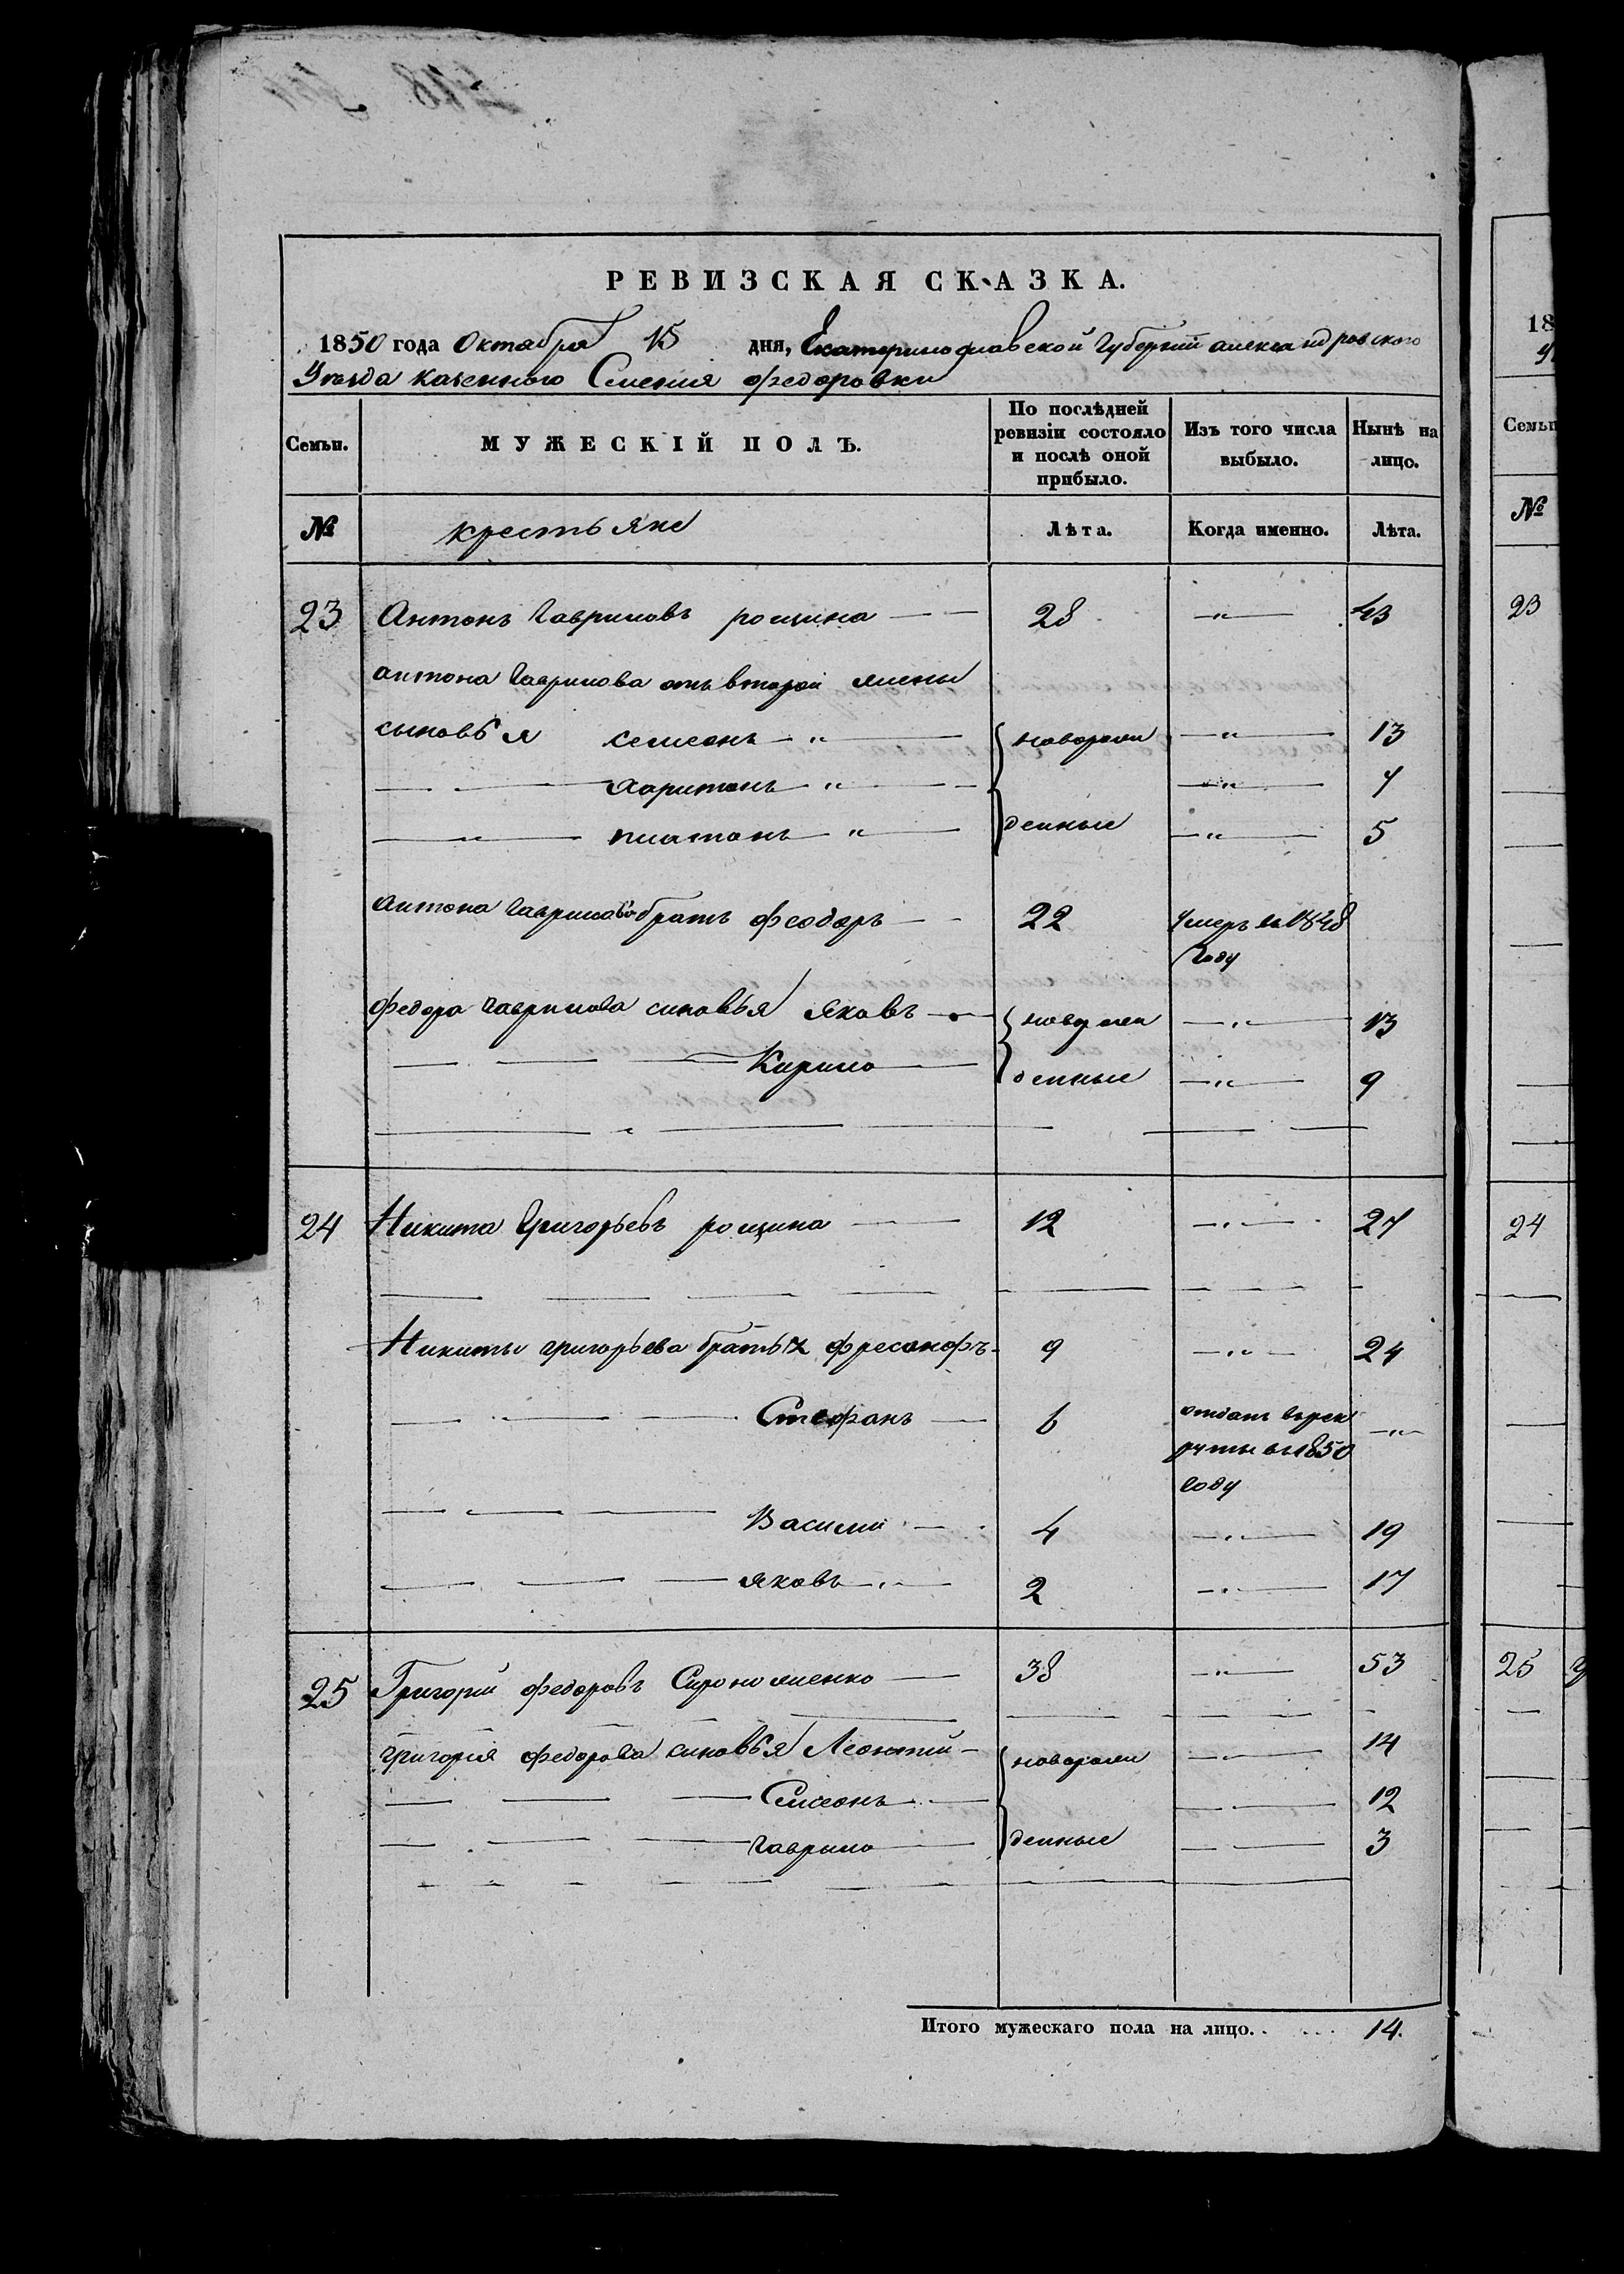 РЕВИЗСКАЯ СКАЗКА.
1850 года Октабра 15 дня, Екатеринославской Губернии александровского
Уезда казенного Селения федоровки
Семьи. МУЖЕСКІЙ ПОЛЪ. По послѣдней ревизіи состояло и послѣ оной прибыло. Изъ того числа выбыло. Нынѣ на лицо.
№ крестьяне Лѣта. Когда именно. Лѣта.
23 Антонъ Гавриловъ рощина 28 — " — 43
антона Гаврилова отъ второй жены
сыновья семеонъ — " — новорож — " — 13
Харитонъ — " — — " — 7
платонъ — " — денные — " — 5
антона Гаврилова братъ феодоръ 22 Умеръ въ 1848
Году
федора Гаврилова синовья яковъ новорож — " — 13
Кирило денные — " — 9
24 Никита Григорьевъ рощина 12 — " — 27
Никиты григорьева братья фресанофъ 9 — " — 24
Стефанъ 6 отданъ врек — " —
руты в 1850
году
Василий 4 — " — 19
яковъ — " — 2 — " — 17
25 Григорий федоровъ 38 — " — 53
григория федорова синовья Леонтий новорож — " — 14
Семеонъ 12
гаврило денные 3
Итого мужескаго пола на лицо. . . . . 14.
18
Семьи
№
23
24
25